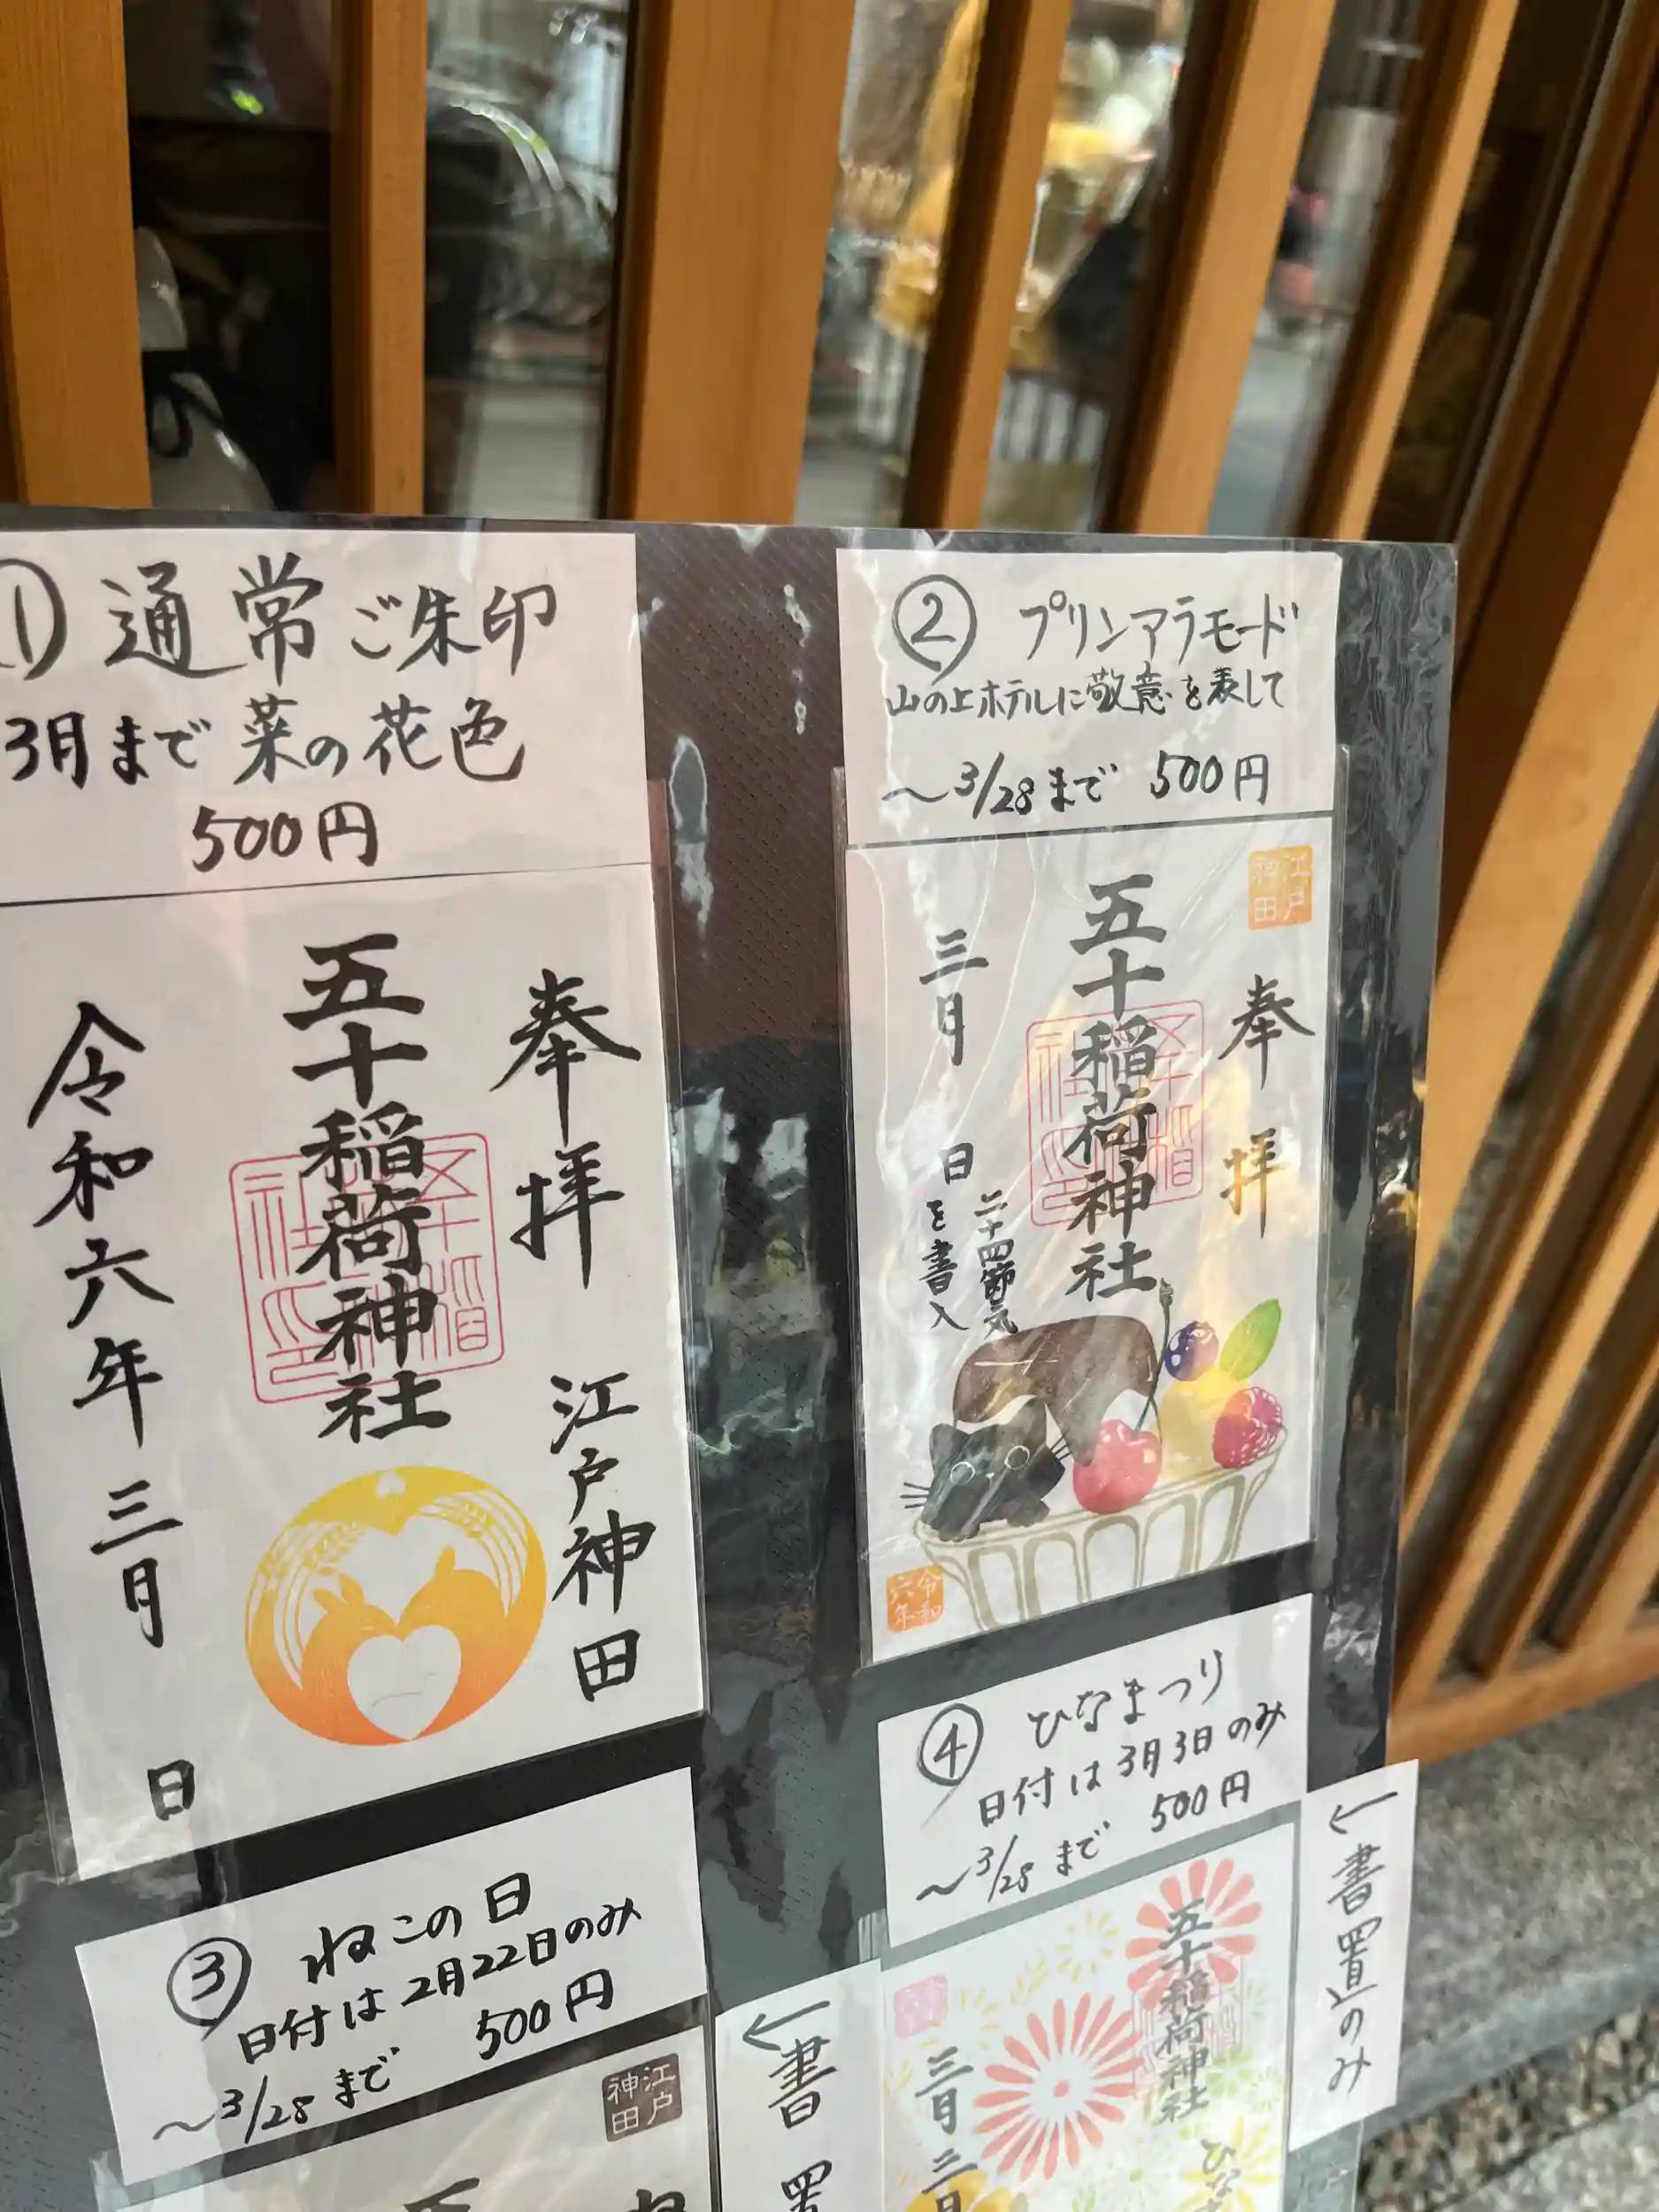 ① 通常ご朱印
3月まで 菜の花色
500円
奉拝 江戸神田
五十稲荷神社
令和六年 三月 日
② プリンアラモード
山の上ホテルに敬意を表して
～3/28まで 500円
江戸神田
奉拝
五十稲荷神社
三月 日
二十四節気
を書入
令和六年
③ ねこの日
日付は2月22日のみ
～3/28まで 500円
江戸神田
五
←書置
④ ひなまつり
日付は3月3日のみ
～3/28まで 500円
五十稲荷神社
三月三日
ひな
←書置のみ